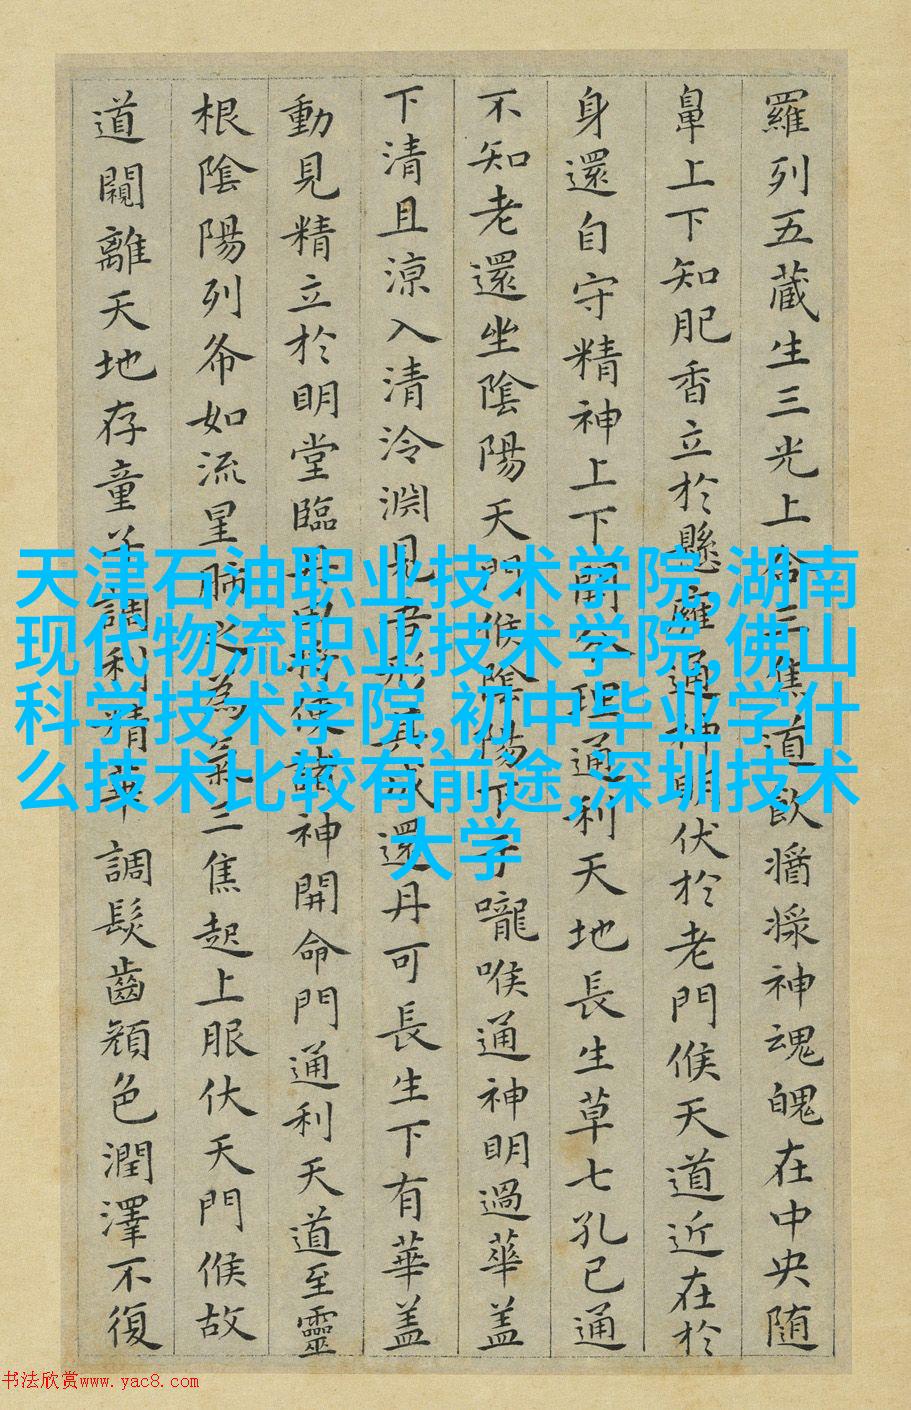 羅列五藏生三光上合三焦道飲醬漿神魂魄在中央随
鼻上下知肥香立於懸癰通神明伏於老門候天道近在於
身還自守精神上下開分理通利天地長生草七孔已通
不知老還坐陰陽天門候陰陽下于嚨喉通神明過華盖
下清且涼入清泠淵見吾形其成還丹可長生下有華盖
動見精立於明堂臨丹田將使諸神開命門通利天道至靈
根陰陽列布如流星肺之為氣三焦起上服伏天門候故
道闚離天地存童子調利精華調髮齒顔色潤澤不復
天津石油职业技术学院,湖南
现代物流职业技术学院,佛山
科学技术学院,初中毕业学什
么技术比较有前途,深圳技术
大学
书法欣赏www.yac8.com